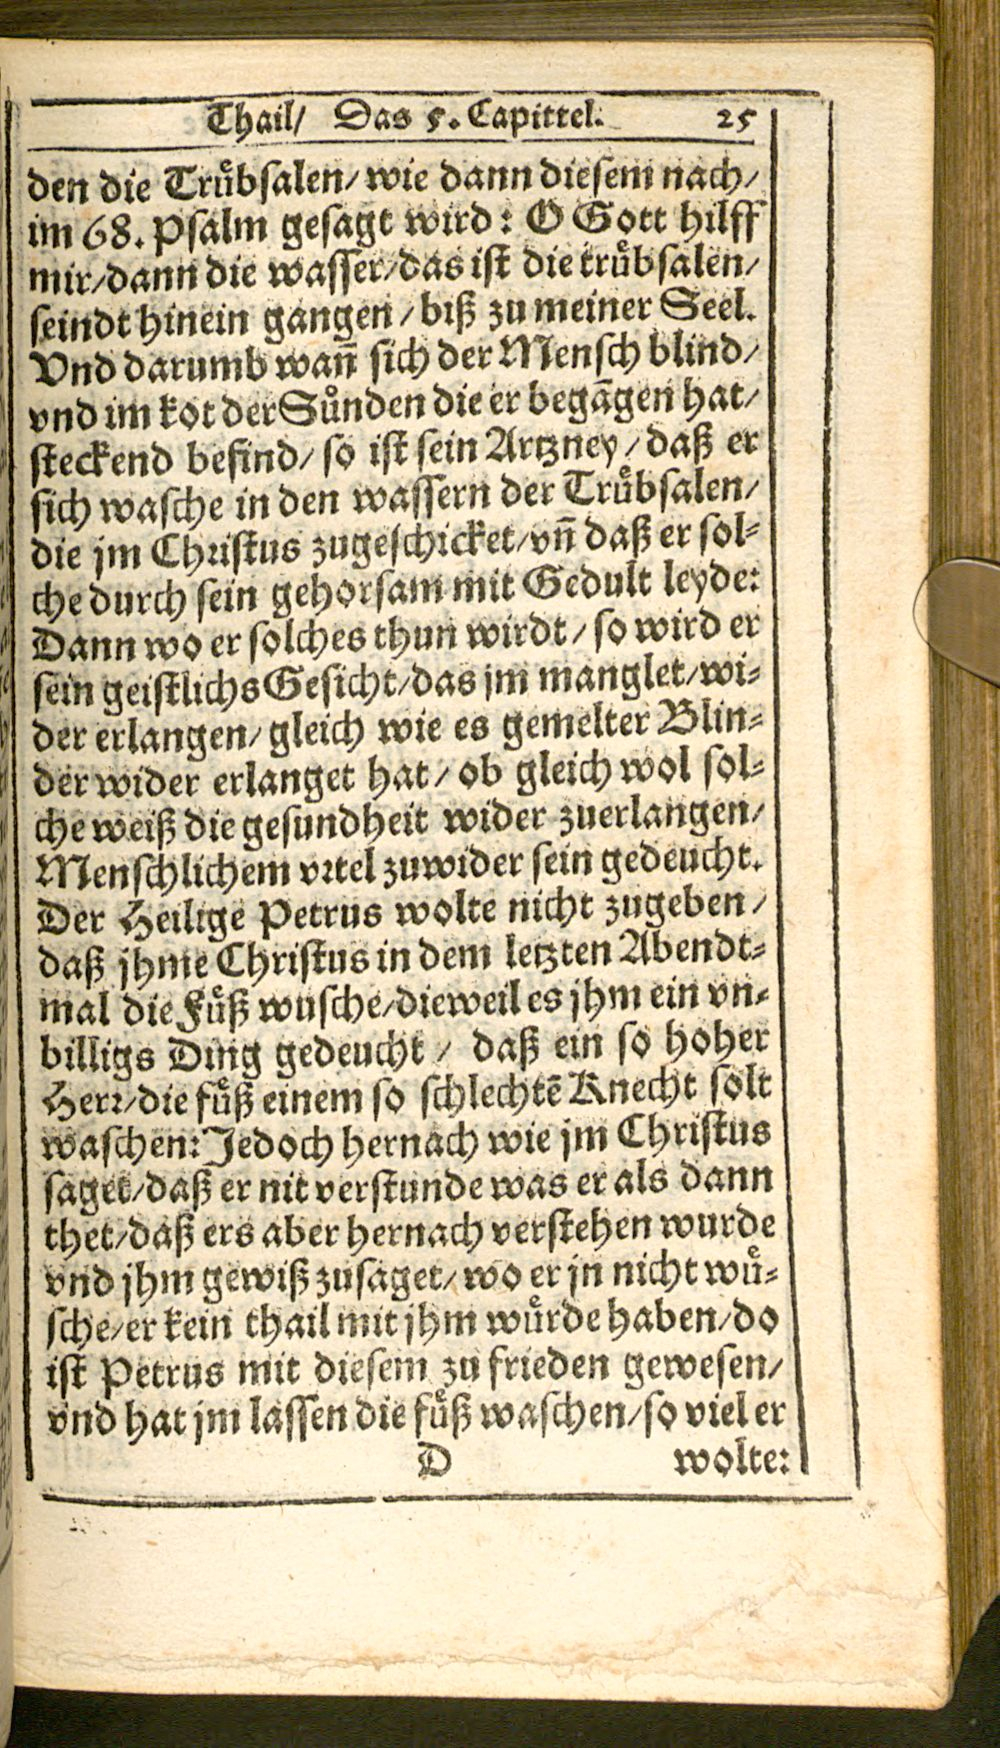 Thail/ Das 5. Capittel. 25
den die Truͤbsalen/ wie dann diesem nach/
im 68. Psalm gesagt wird: O Gott hilff
mir/ dann die wasser/ das ist die truͤbsalen/
seindt hinein gangen / biß zu meiner Seel.
Vnd darumb wan̄ sich der Mensch blind/
vnd im kot der Suͤnden die er begāgen hat/
steckend befind/ so ist sein Artzney / daß er
sich wasche in den wassern der Truͤbsalen/
die jm Christus zugeschicket/ vn̄ daß er sol-
che durch sein gehorsam mit Gedult leyde:
Dann wo er solches thun wirdt / so wird er
sein geistlichs Gesicht/ das jm manglet/ wi-
der erlangen/ gleich wie es gemelter Blin-
der wider erlanget hat / ob gleich wol sol-
che weiß die gesundheit wider zuerlangen/
Menschlichem vrtel zuwider sein gedeucht.
Der Heilige Petrus wolte nicht zugeben /
daß jhme Christus in dem letzten Abendt-
mal die Fuͤß wusche/ dieweil es jhm ein vn-
billigs Ding gedeucht / daß ein so hoher
Herr/ die fuͤß einem so schlechtē Knecht solt
waschen: Jedoch hernach wie jm Christus
saget/ daß er nit verstunde was er als dann
thet/ daß ers aber hernach verstehen wurde
vnd jhm gewiß zusaget/ wo er jn nicht wuͤ-
sche/ er kein thail mit jhm wuͤrde haben/ do
ist Petrus mit diesem zu frieden gewesen/
vnd hat jm lassen die fuͤß waschen/ so viel er
D wolte: